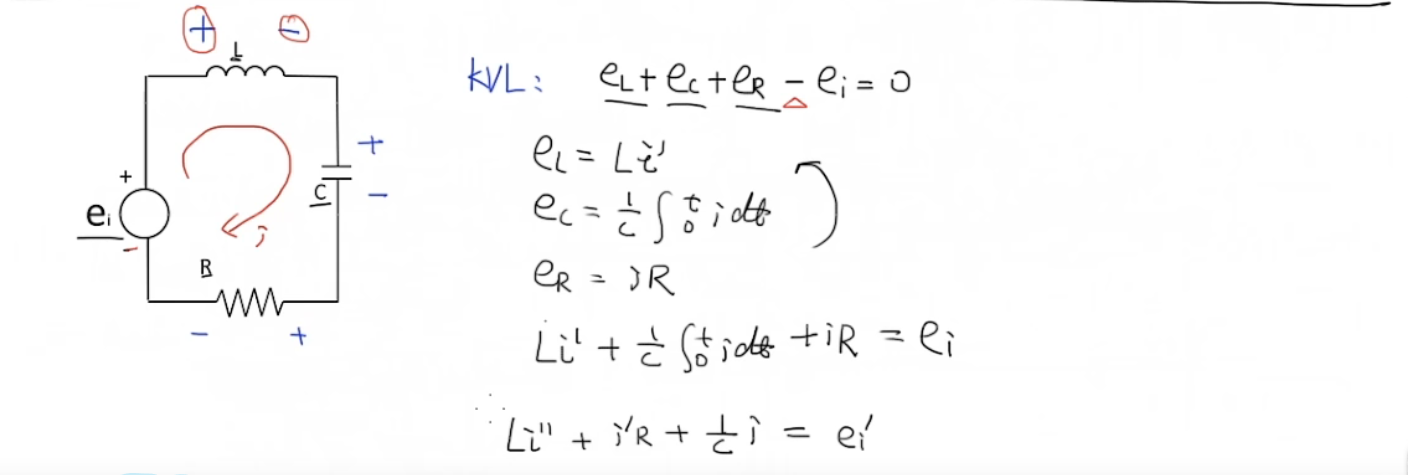 + -
L
KVL: eL + ec + eR - ei = 0
+
+
C
-
ei
-
i
R
- +
eL = Li'
ec = 1/C ∫₀ᵗ i dt
eR = iR
Li' + 1/C ∫₀ᵗ i dt + iR = ei
∴ Li'' + i'R + 1/C i = ei'